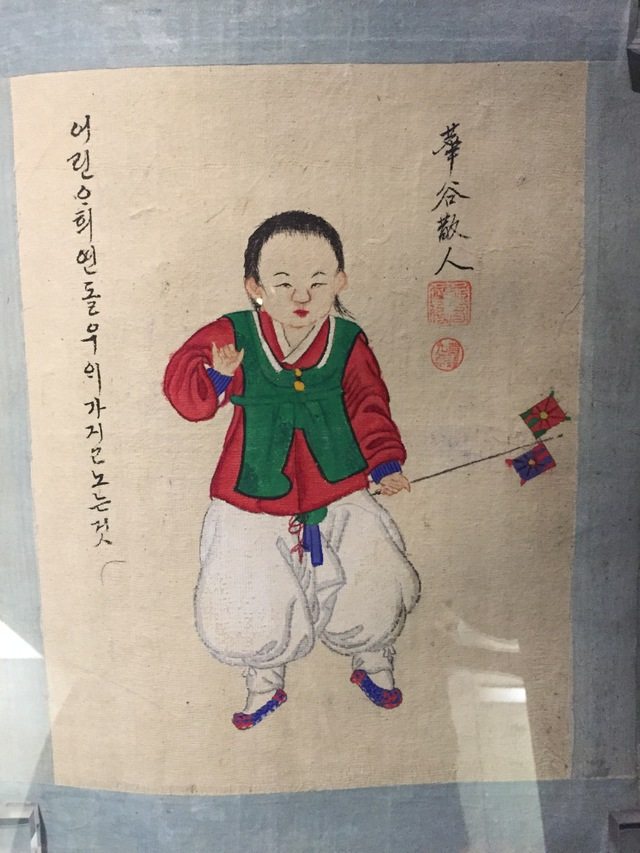 華谷散人
어린ᄋᆞ희연돌우의가지고노는것